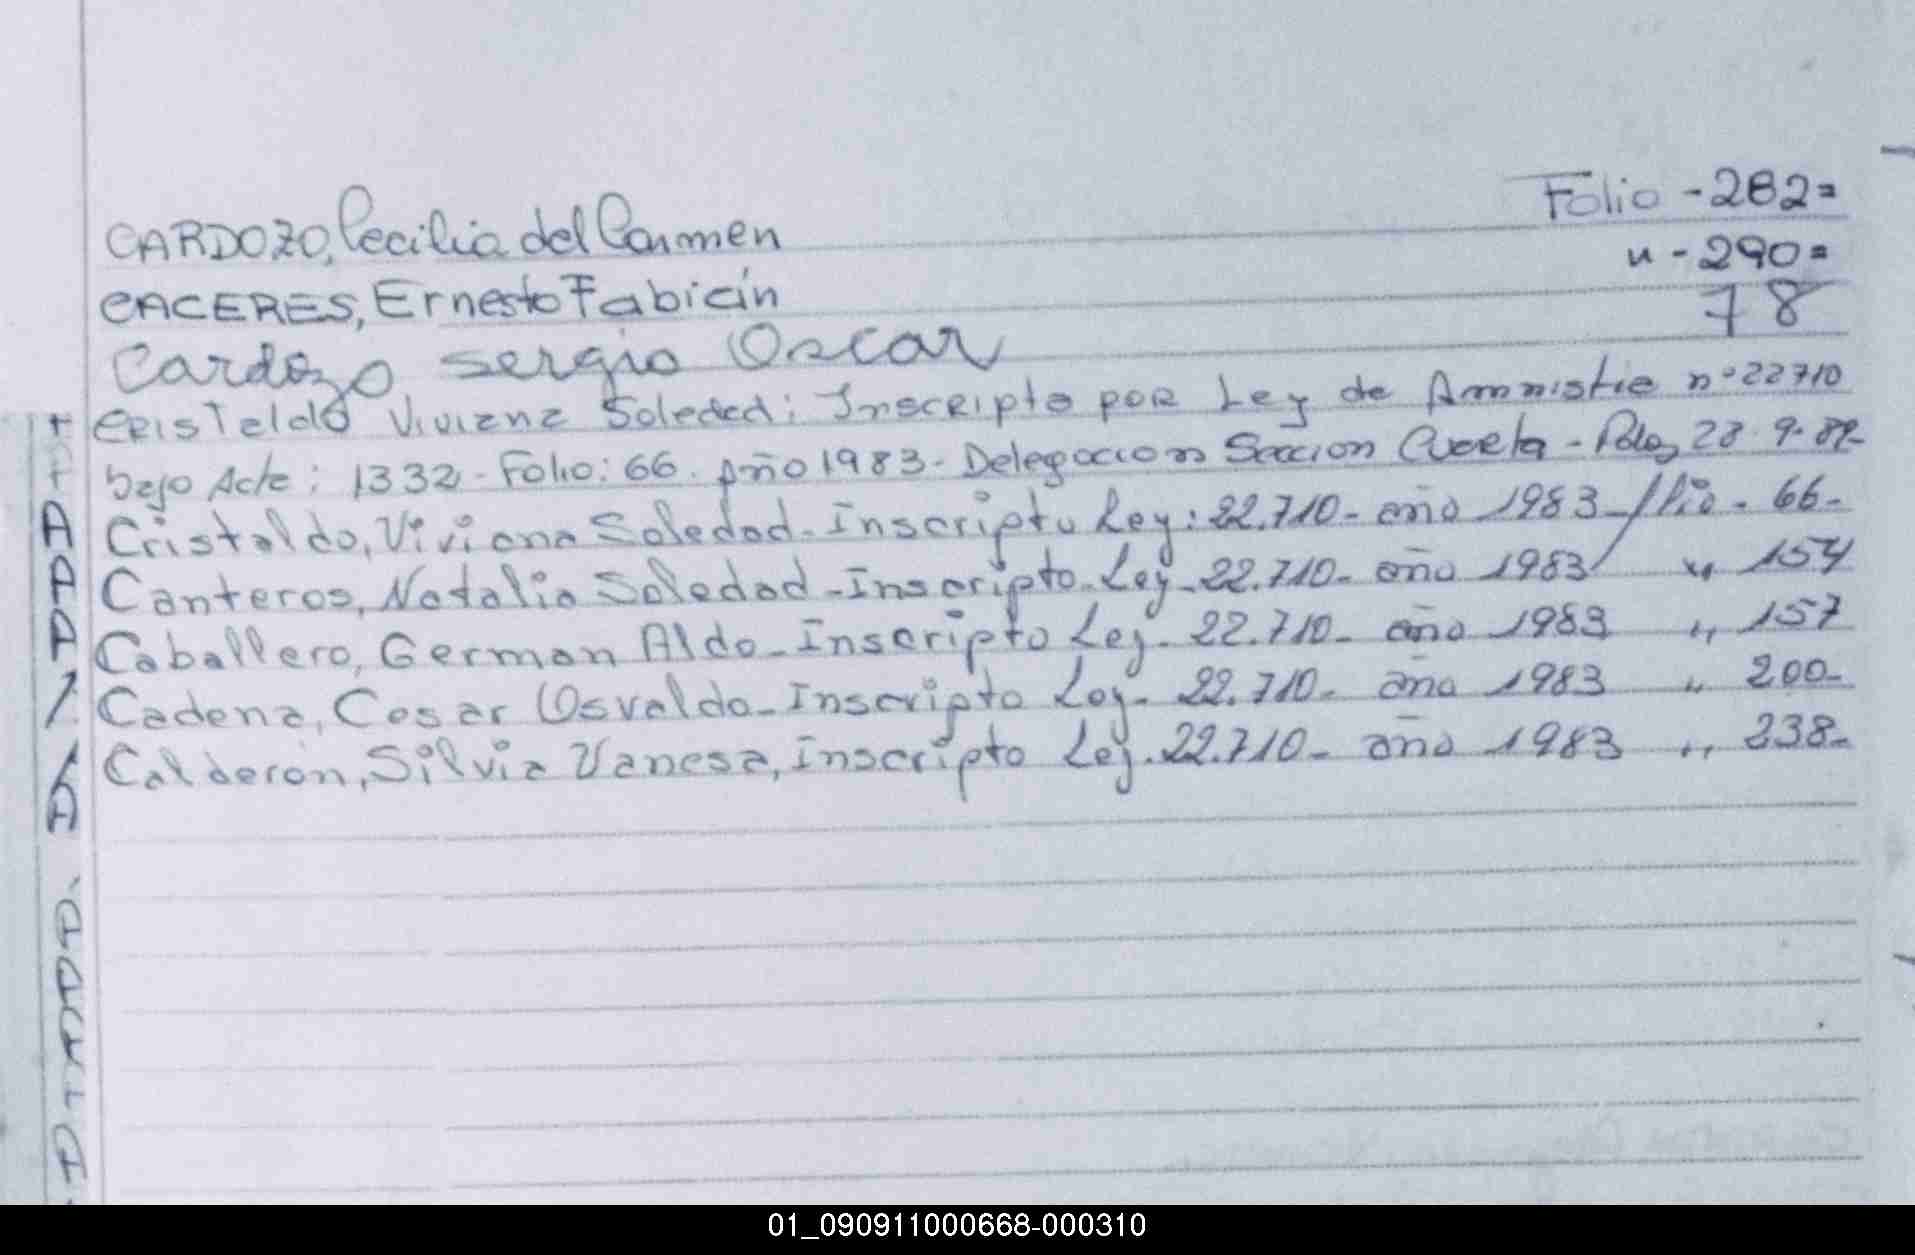 CARDOZO, Cecilia del Carmen Folio - 282=
CACERES, Ernesto Fabián " - 290=
Cardozo Sergio Oscar 78
CRISTALDO Viviana Soledad: Inscripta por Ley de Amnistia nº 22710
bajo Acta: 1332 - Folio: 66. Año 1983 - Delegacion Seccion Cuarta - Pdas, 28.9.89-
Cristaldo, Viviana Soledad - Inscripto Ley: 22.710 - año 1983 - folio - 66-
Canteros, Natalia Soledad - Inscripto - Ley - 22.710 - año 1983 " 154
Caballero, German Aldo - Inscripto Ley - 22.710 - año 1983 " 157
Cadena, Cesar Osvaldo - Inscripto Ley - 22.710 - año 1983 " 200-
Calderon, Silvia Vanesa, Inscripto Ley. 22.710 - año 1983 " 238-
01_090911000668-000310